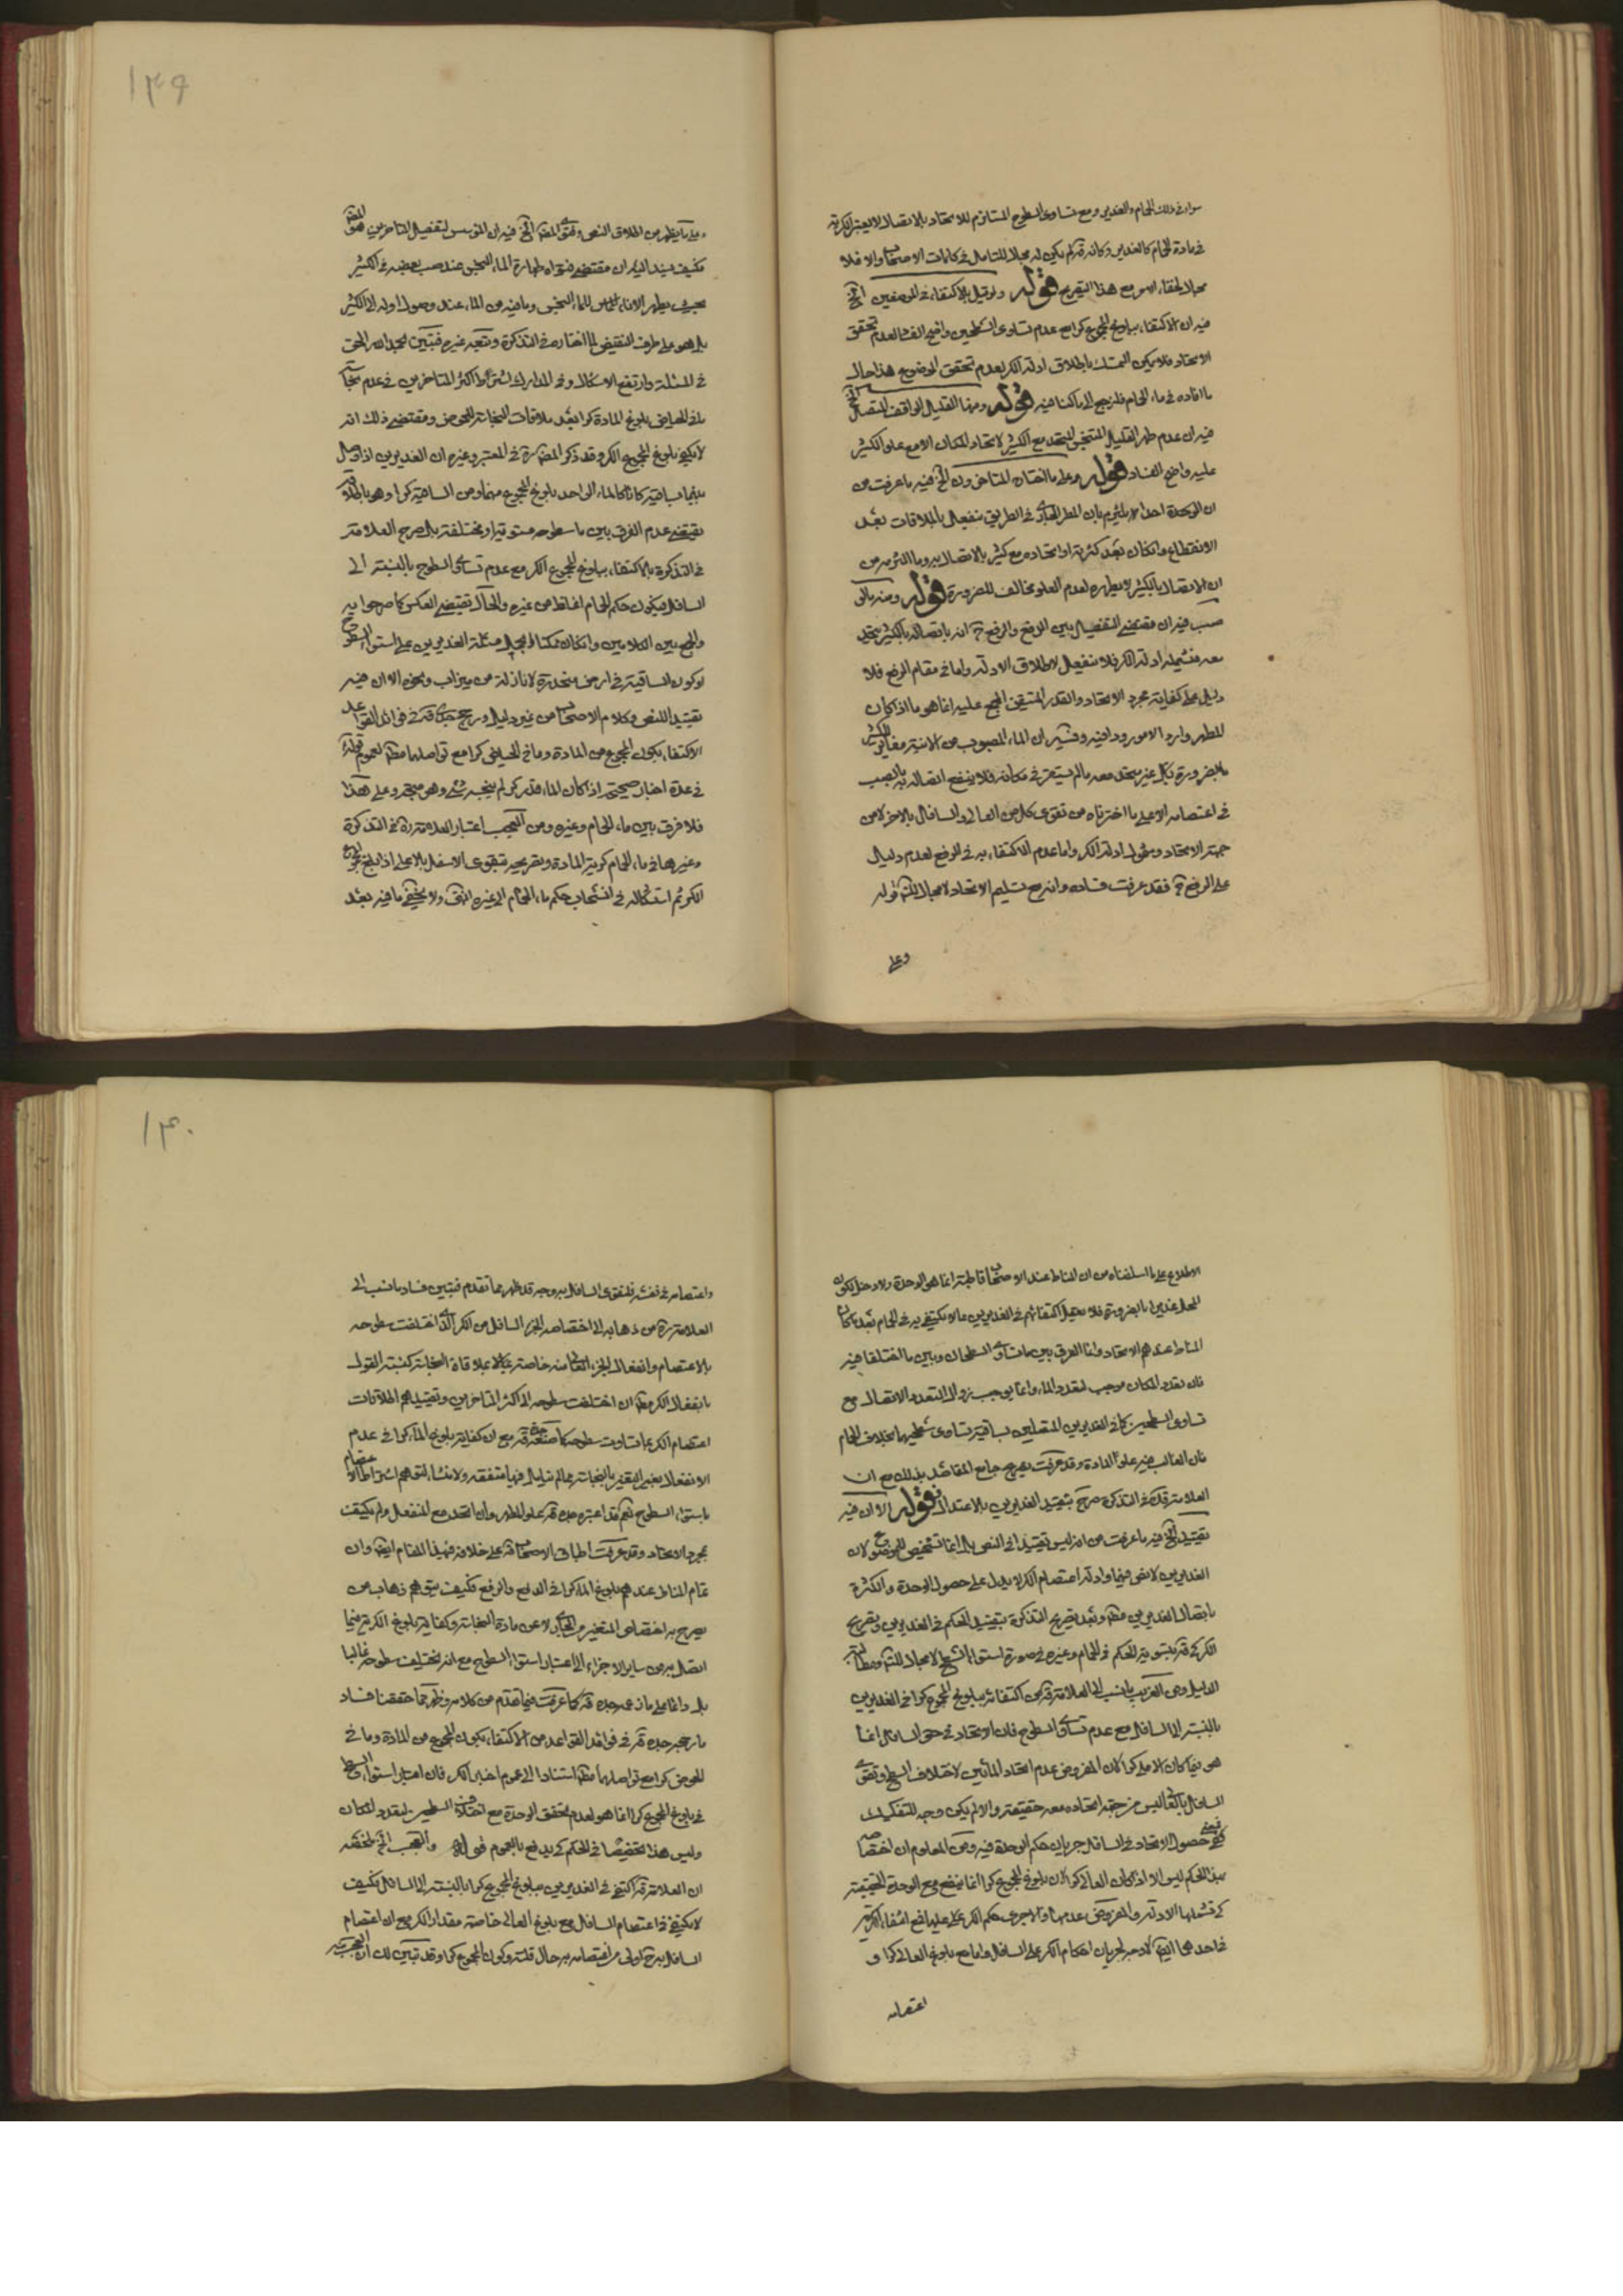 سواء في ذلك الحمام والغديرين ومع تساوى السطوح المستلزم للاتحاد بالاتصال لا يعتبر الكرية
في مادة الحمام كالغديرين وكانه قده لم يكن له مجال للتامل في كلمات الاصحاب والا فلا
مجال لخفاء الامر مع هذا التصريح قوله ولو قيل بالاكتفاء في الموضعين الخ
فيه ان الاكتفاء ببلوغ المجموع كرا مع عدم تساوى السطحين واضح الفساد لعدم تحقق
الاتحاد فلا يمكن التمسك باطلاق ادلة الكر لعدم تحقق الموضوع هذا حال
ما افاده في ماء الحمام فلنرجع الى ما كنا فيه قوله ومنها القليل الواقف المتصل الخ
فيه ان عدم طهر القليل المتنجس المتحد مع الكثير لاتحاد المكان الا مع علو الكثير
عليه واضح الفساد قوله وعلى ما اختاره المتاخرون الخ فيه ما عرفت من
ان الوحدة احدا لا يلتزم بان المطر الجارى في الطريق ينفعل بالملاقات بعد
الانقطاع وان كان بعد كثرته او اتحاده مع كثير بالاتصال به وما التزمه من
ان الاتصال بالكثير لا يطهره لعدم العلو مخالف للضرورة قوله ومنه ما لو
صب فيه ان مقتضى التفصيل بين الدفع والرفع انه باتصاله بالكثير يتحد
معه فتشمله ادلة الكر فلا ينفعل لاطلاق الادلة واما في مقام الرفع فلا
دليل على كفاية مجرد الاتحاد والقدر المتيقن المجمع عليه انما هو ما اذا كان
المطهر واردا لا مورودا فيه وفيه ان الماء المصبوب من الآنية مغاير للكثير
بالضرورة بل غير متحد معه ما لم يستقر في مكانه فلا ينفع اتصاله به بالصب
في اعتصامه الا على ما اخترناه من تقوى كل من العالى والسافل بالاخر لا من
جهة الاتحاد وشمول ادلة الكر واما عدم الاكتفاء به في الرفع لعدم دليل
على الرفع فقد عرفت فساده وانه مع تسليم الاتحاد لا مجال للشك قوله
وعلى
١٣٩
وعلى ما يظهر من اطلاق النص وفتوى المصنف الخ فيه ان المؤسس لتفصيل المتاخرين هو المصنف
فكيف يسند اليه ان مقتضى فتواه طهارة الماء النجس عند صب بعضه في الكثير
بحيث يطهر الاناء المماس للماء النجس وما فيه من الماء عند وصول اوله الى الكثير
بل هو على طرف النقيض لما اختاره في التذكرة وتبعه غيره فتبين بحمد الله الحق
في المسئلة وارتفع الاشكال وفي المدارك اشترط اكثر المتاخرين في عدم نجاسة
ما في الحياض بلوغ المادة كرا بعد ملاقات النجاسة للحوض ومقتضى ذلك انه
لا يكفى بلوغ المجموع الكر وقد ذكر المصنف ره في المعتبر وغيره ان الغديرين اذا وصل
بينهما بساقية كانا كالماء الواحد بلوغ المجموع منهما ومن الساقية كرا وهو باطلاقه
يقتضى عدم الفرق بين ما سطوحه مستوية او مختلفة بل صرح العلامة
في التذكرة بالاكتفاء ببلوغ المجموع الكر مع عدم تساوى السطوح بالنسبة الى
السافل فيكون حكم الحمام اغلظ من غيره والحال تقتضى العكس كما صرحوا به
والجمع بين الكلامين وان كان ممكنا بحمل مسئلة الغديرين على استواء السطوح
او كون الساقية في ارض منحدرة لا نازلة من ميزاب ونحوه الا ان فيه
تقييد اللنص وكلام الاصحاب من غير دليل ورجح جدى قده في فوائد القواعد
الاكتفاء بكون المجموع من المادة وما في الحياض كرا مع تواصلهما مطلقا لعموم قوله ع
في عدة اخبار صحيحة اذا كان الماء قدر كر لم ينجسه شئ وهو متجه وعلى هذا
فلا فرق بين ماء الحمام وغيره ومن العجب اعتبار العلامة ره في التذكرة
وغيرها في ماء الحمام كرية المادة وتصريحه بتقوى الاسفل بالاعلى اذا بلغ المجموع
الكر ثم استشكاله في انسحاب حكم ماء الحمام الى غيره انتهى ولا يخفى ما فيه بعد
الاطلاع على ما اسلفناه من ان المناط عند الاصحاب قاطبة انما هو الوحدة ولا دخل لكون
المحل غديرا بالضرورة فلا معنى لاكتفائهم في الغديرين بما لا يكتفى به في الحمام بعد ما كان
المناط عندهم الاتحاد وانما الفرق بين ما تساوى السطحان وبين ما اختلفا فيه
فان تعدد المكان موجب لتعدد الماء وانما يوجب زوال التعدد الاتصال مع
تساوى السطحين كما في الغديرين المتصلين بساقية تساوى سطحيهما بخلاف الحمام
فان الغالب فيه علو المادة وقد عرفت تصريح جامع المقاصد بذلك مع ان
العلامة قده في التذكرة صرح بتقييد الغديرين بالاعتدال قوله الا ان فيه
تقييد الخ فيه ما عرفت من انه ليس تقييدا في النص بل انما تشخيص للموضوع لان
الغديرين لا نص فيهما وادلة اعتصام الكر لا يدل على حصول الوحدة والكثرة
باتصال الغديرين مطلقا وبعد تصريح التذكرة بتقييد الحكم في الغديرين وتصريح
الكركى قده بتسوية الحكم في الحمام وغيره في صورة استواء السطح لا مجال للشك ومطالبة
الدليل ومن الغريب ما نسب الى العلامة قده من اكتفائه ببلوغ المجموع كرا في الغديرين
بالنسبة الى السافل مع عدم تساوى السطوح فان الاتحاد في حق السافل انما
هو فيما كان الاعلى كرا لان المفروض عدم اتحاد المائين لاختلاف السطح وتقوى
السافل بالعالى ليس من جهة اتحاده معه حقيقة والا لم يكن وجه للتفكيك
فمعنى حصول الاتحاد في السافل جريان حكم الوحدة فيه ومن المعلوم ان اختصاصه
بهذا الحكم ليس الا اذا كان العالى كرا لان بلوغ المجموع كرا انما ينفع مع الوحدة الحقيقية
كى تشملها الادلة والمفروض عدمها والا لجرى حكم الكر على عليهما فمع انتفاء الكرية
في احدهما ايضا لا وجه لجريان احكام الكر على السافل واما مع بلوغ العالى كرا و
اعتصامه
١٤٠
واعتصامه في نفسه فلتقوى السافل به وجه قد ظهر مما تقدم فتبين فساد ما نسب الى
العلامة ره من ذهابه الى اختصاص الجزء السافل من الكر الذى اختلفت سطوحه
بالاعتصام وانفعال الجزء العالى منه خاصة بملاقاة النجاسة كنسبة القول
بانفعال الكر مطلقا ان اختلفت سطوحه الى اكثر المتاخرين وتقييدهم اطلاقات
اعتصام الكر بما تساوت سطوحه كما صنعه قده مع ان كفاية بلوغ الماء كرا في عدم
الانفعال بغير التغير بالنجاسة مما لم نتامل فيها متفقه ولا منشا لتوهم اشتراط الاعتصام
باستواء السطوح نعم قد اعتبر جده قده علو المطهر وان اتحد مع المنفعل ولم يكتف
بمجرد الاتحاد وقد عرفت اطباق الاصحاب قده على خلافه في هذا المقام ايضا وان
تمام المناط عندهم بلوغ الماء كرا في الدفع والرفع فكيف يتوهم ذهاب من
يصرح باختصاص المتغير من الجارى لا عن مادة النجاسة وكفاية بلوغ الكرية فيما
اتصل به من ساير الاجزاء الى اعتبار استواء السطوح مع انه تختلف سطوحه غالبا
بل دائما على ما زعمه جده قده كما عرفت فيما تقدم من كلامه وظهر مما حققنا فساد
ما رجحه جده قده في فوائد القواعد من الاكتفاء بكون المجموع من المادة وما في
الحوض كرا مع تواصلهما مطلقا استنادا الى عموم اخبار الكر فان اعتبار استواء السطح
في بلوغ المجموع كرا انما هو لعدم تحقق الوحدة مع اختلاف السطحين لتعدد المكان
وليس هذا تخصيصا في الحكم كى يدفع بالعموم قوله والعجب الخ ملخصه
ان العلامة قده اكتفى في الغديرين ببلوغ المجموع كرا بالنسبة الى السافل فكيف
لا يكتفى في اعتصام السافل مع بلوغ العالى خاصة مقدار الكر مع ان اعتصام
السافل به ح اولى من اعتصامه به حال قلته وكون المجموع كرا وقد تبين لك ان العجب